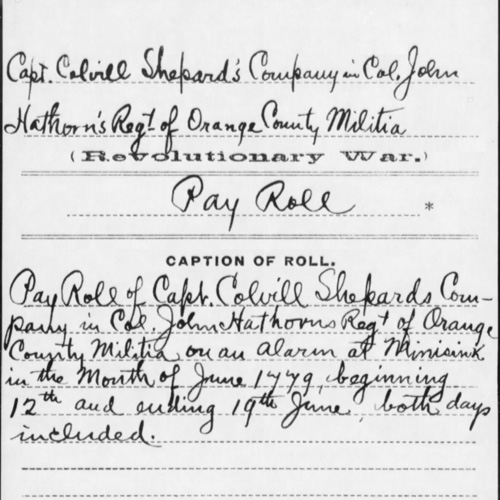 Capt. Colvill Shepard's Company in Col. John
Hathorn's Regt of Orange County Militia
(Revolutionary War.)
Pay Roll *
CAPTION OF ROLL.
Pay Roll of Capt. Colvill Shepards Com-
pany in Col. John Hathorns Regt of Orange
County Militia on an alarm at Minisink
in the Month of June 1779, beginning
12th and ending 19th June, both days
included.